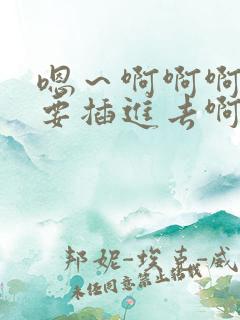 嗯～啊啊啊
要插進去啊
邦妮-埃革-威
未经同意禁止转载